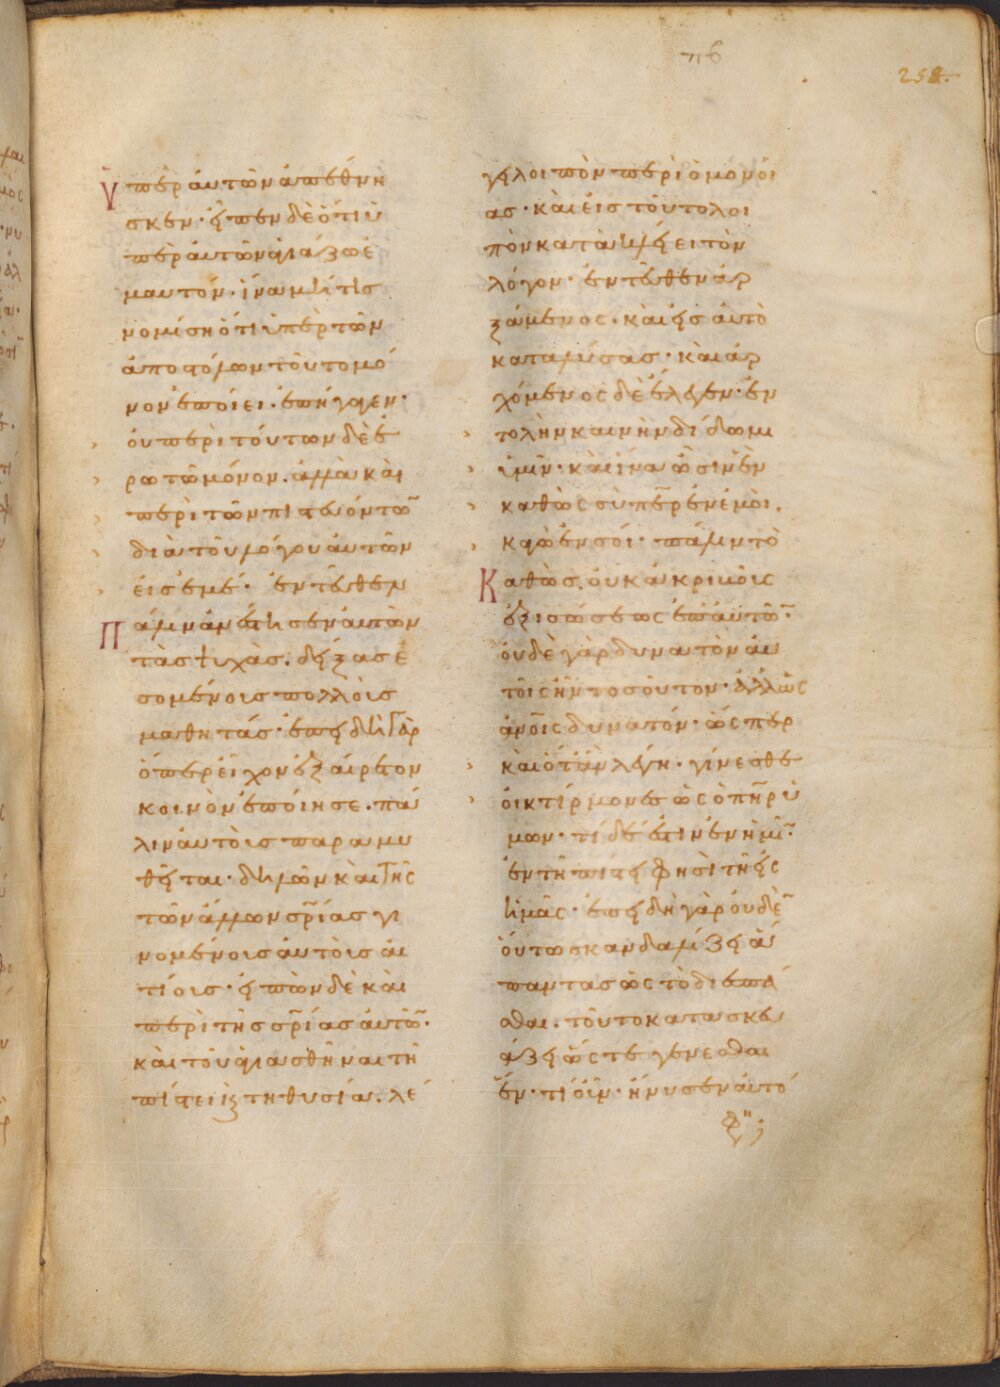 πϛ
258.
ὑπὲρ αὐτῶν ἀπέθνη
σκεν· εἰπὼν δὲ ὅτι ὑ
πὲρ αὐτῶν ἁγιάζω ἐ
μαυτόν· ἵνα μή τις
νομίση ὅτι ὑπὲρ τῶν
ἀποστόλων τοῦτο μό
νον ἐποίει· ἐπήγαγεν·
οὐ περὶ τούτων δὲ ἐ
ρωτῶ μόνον· ἀλλὰ καὶ
περὶ τῶν πιστευόντω̅
διὰ τοῦ λόγου αὐτῶν
εἰς ἐμέ· ἐντεῦθεν
Πάλιν ἀνέστησεν αὐτῶν
τὰς ψυχὰς. δείξας ἐ
σομένοις πολλοῖς
μαθητάς· ἐπειδὴ γὰρ
ὅπερ εἶχον ἐξαίρετον
κοινὸν ἐποίησε· πά
λιν αὐτοῖς παραμυ
θεῖται· δηλῶν καὶ τῆς
τῶν ἄλλων σρ̅ίας γι
νομένοις αὐτοῖς αἰ
τίοις· εἰπὼν δὲ καὶ
περὶ τῆς σρ̅ίας αὐτῶ̅·
καὶ τοῦ ἁγιασθῆναι τῆ
πίστει κ τῆ θυσία. λέ
γει λοιπὸν περὶ ὁμονοί
ας· καὶ εἰς τοῦτο λοι
πὸν καταλήγει τὸν
λόγον· ἐντεῦθεν ἀρ
ξάμενος· καὶ εἰς αὐτὸ
καταλύσας· καὶ ἀρ
χόμενος δὲ ἔλεγεν· ἐν
τολὴν καινὴν δίδωμι
ὑμῖν· καὶ ἵνα ὦσιν ἓν
καθὼς σὺ πη̅ρ ἐν ἐμοὶ.
κἀγὼ ἐν σοί· πάλιν τὸ
Καθὼς. οὐκ ἀκριβοῦς
ἐξισώσεως ἐπ αὐτῶ̅·
οὐδὲ γὰρ δυνατὸν αὐ
τοῖς ἦν τοσοῦτον· ἀλλ ὡς
ἀνοῖς δυνατόν· ὥσπερ
καὶ ὅταν λέγη· γίνεσθε
οἰκτίρμονες ὡς ὁ πη̅ρ ὑ
μων· τί δέ ἐστιν ἐν ἡμῖ̅·
ἐν τῆ πίστει φησὶ τῆ εἰς
ἡμᾶς· ἐπειδὴ γὰρ οὐδὲ̅
οὕτω σκανδαλίζει ἅ
παντας ὡς τὸ διεσπά
σθαι· τοῦτο κατασκευ
άζει ὥστε γενέσθαι
ἕν· τί οὖν· ἤνυσεν αὐτό
φη;